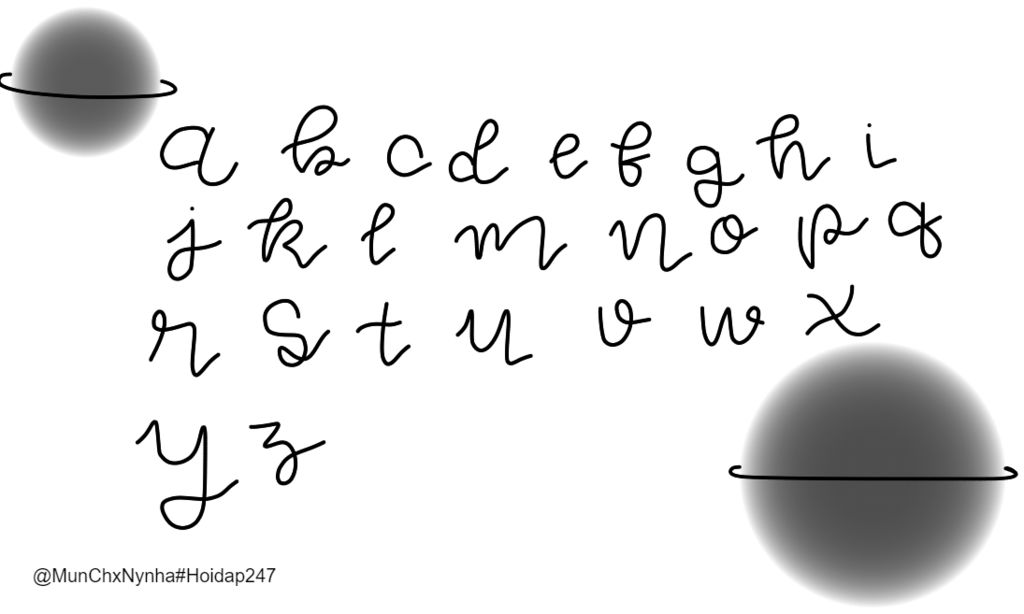 a b c d e f g h i
j k l m n o p q
r s t u v w x
y z
@MunChxNynha#Hoidap247